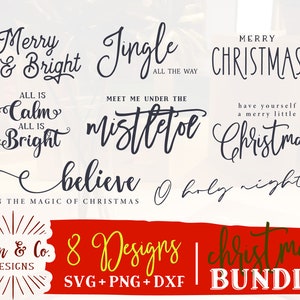 Merry
& Bright
Jingle
ALL THE WAY
MERRY
CHRISTMAS
ALL IS
Calm
ALL IS
Bright
MEET ME UNDER THE
mistletoe
have yourself
a merry little
Christmas
believe
IN THE MAGIC OF CHRISTMAS
O holy night
& Co.
DESIGNS
8 Designs
SVG + PNG + DXF
christmas
BUNDLE